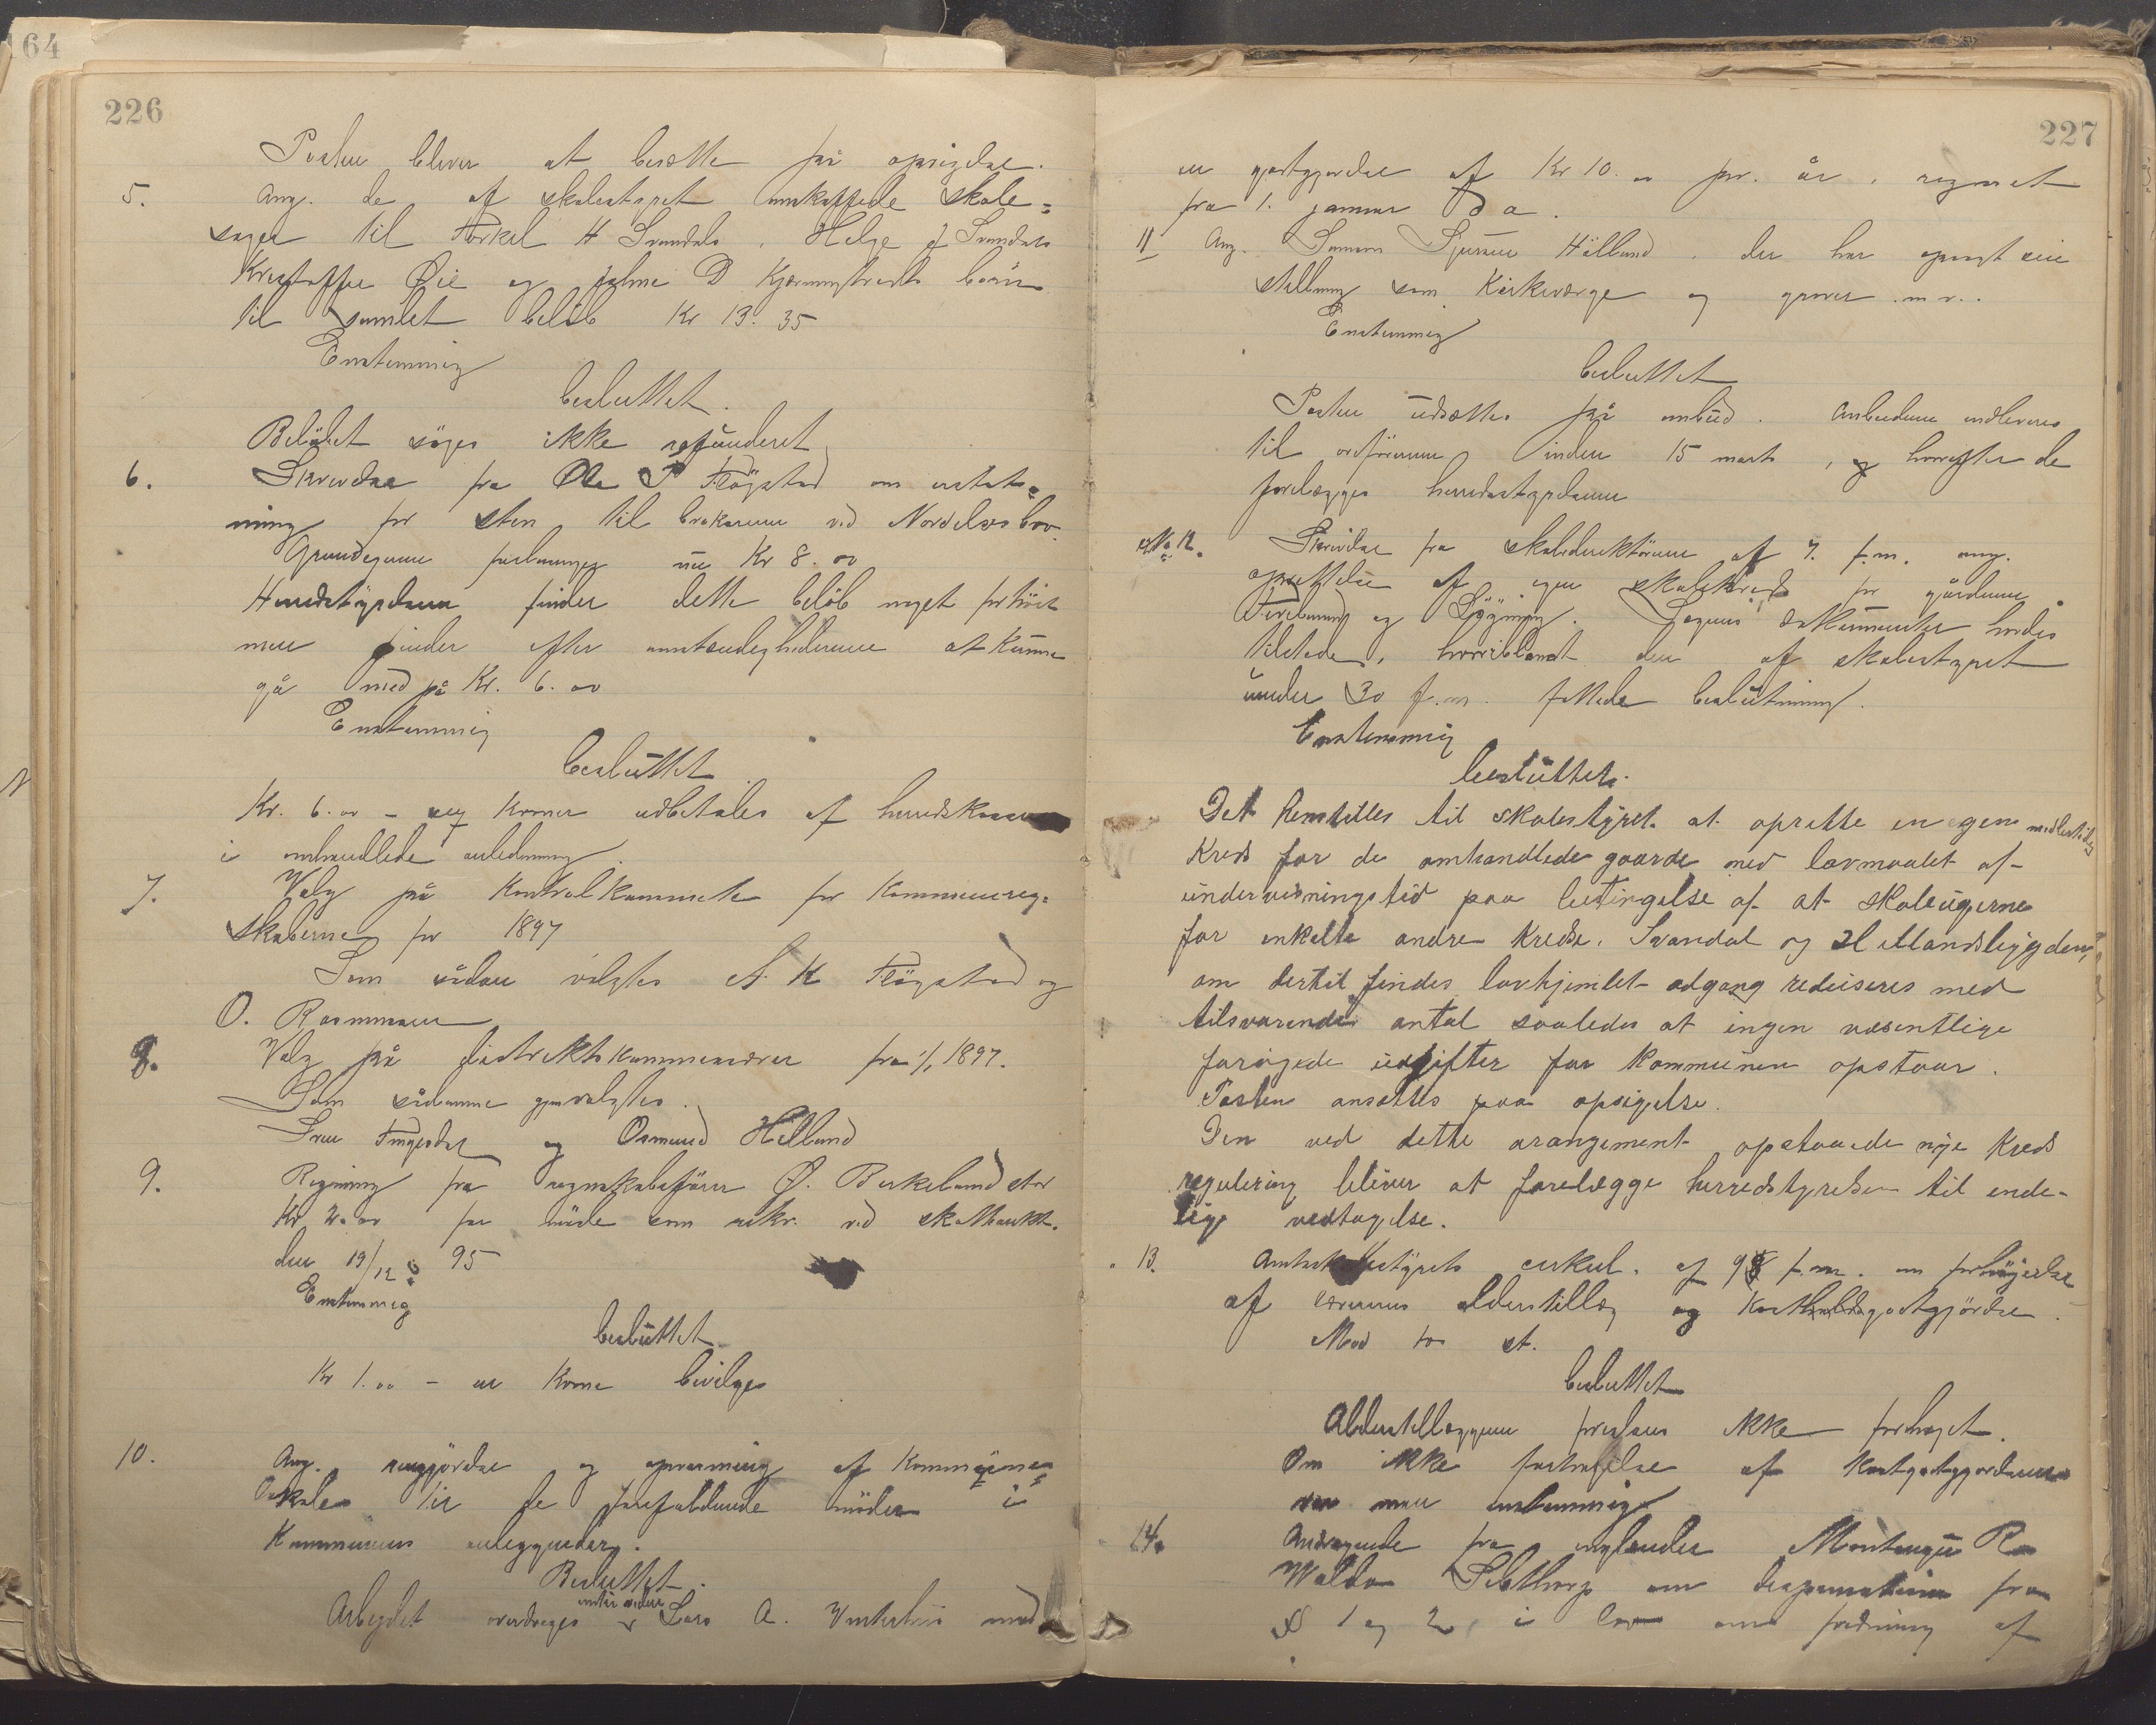 164
226
Posten bliver at besætte på opsigelse.
5. Ang. de af skolestyret anskaffede skole=
sager til Torkel H Svandals, Helge J Svandals
Kristoffer Øie og Jalmer D Kjærringtveits børn
til samlet beløb Kr 13.35
Enstemmig
besluttet.
Beløbet søges ikke refunderet
6. Skrivelse fra Ole P Fløgstad om erstat=
ning for sten til brokarene ved Nordelvs bro.
Grundeierne forlanger nu Kr 8.00
Herredstyrelsen finder dette beløb noget forhøit
men finder efter omstændighederne at kunne
gå med på Kr. 6.00
Enstemmig
besluttet
Kr. 6.00 – sex kroner udbetales af herredskassen
i omhandlede anledning.
7. Valg på kontrolkommite for kommunereg=
skaberne for 1897
Som sådan valgtes A. K Fløgstad og
O. Rasmussen
8. Valg på distriktskommissærer fra 1/1 1897.
Som sådanne gjenvalgtes.
Sven Fingerdal og Osmund Helland
9. Regning fra regnskabsfører Ø. Birkeland stor
Kr 2.00 for møde som sekr. ved skattaukt.
den 19/12 95
Enstemmig
besluttet
Kr 1.00 – en krone bevilges
10. Ang. rengjørelse og opvarming af kommunens
lokale til de forefaldende møder i
kommunens anliggender.
Besluttet.
Arbeidet overdrages Lars A. Vintertun mod
227
en godtgjørelse af Kr 10.00 pr. år, regnet
fra 1. januar d a.
11 Ang. Gunnar Sjursen Hålland, der har opsagt sin
stilling som kirkeværge og graver m.v..
Enstemmig
besluttet
Posten udsættes på anbud. Anbudene indleveres
til ordføreren inden 15 marts, og hvorefter de
forelægges herredsstyrelsen
No 12. Skrivelse fra skoledirektøren af 7. f.m. ang.
oprettelse af egen skolekreds for gårdene
og Løgning. Sagens dokumenter havdes
tilstede, hvoriblandt den af skolestyret
under 30 f.m. fattede beslutning.
Enstemmig
besluttet.
Det henstilles til skolestyret at oprette en egen midlertidig
Kreds for de omhandlede gaarde med lovmaalet af
undervisningstid paa betingelse af at skoleugerne
for enkelte andre Kredse, Svandal og Hellandsbygden,
om dertil findes lovhjemlet adgang reduseres med
tilsvarende antal saaledes at ingen væsentlige
forøgede udgifter for kommunen opstaar.
Posten ansættes paa opsigelse.
Den ved dette arangement opstaaede nye Kreds
regulering bliver at forelægge herredstyrelsen til ende-
lige vedtagelse.
13. Amtsskolestyrets cirkul. af 98 f.m. om forhøielse
af lærernes alderstillæg og kostholdsgodtgjørelse.
Mod to st.
besluttet
Alderstillæggene foreslaaes ikke forhøiet.
Om ikke forhøielse af kostgodtgjørelsen
var man enstemmig
14. Andragende fra englænder Montague R
Waldo Sibthorp om dispensation fra
§ 1 og 2, i lov om fredning af